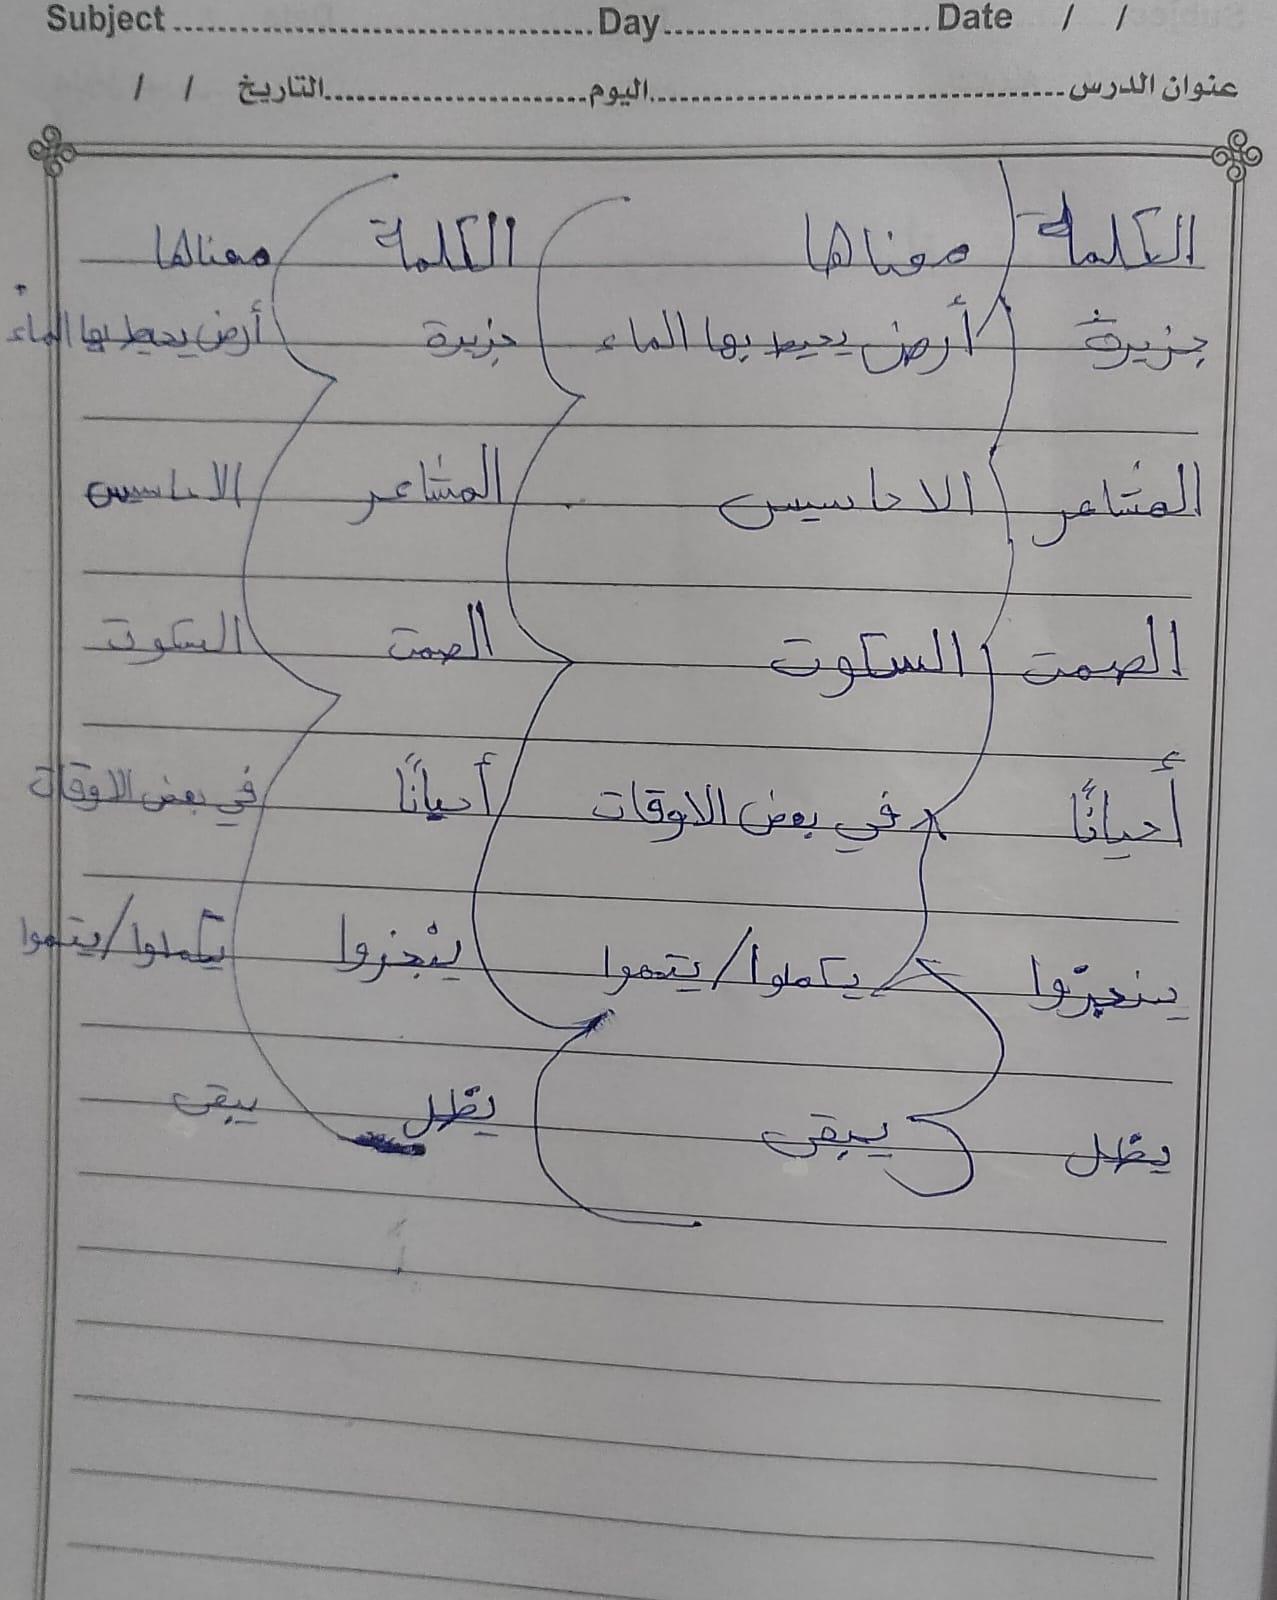 Subject Day Date / /
عنوان الدرس اليوم التاريخ / /
الكلمة معناها الكلمة معناها
جزيرة أرض يحيط بها الماء جزيرة أرض يحيط بها الماء
المشاعر الاحاسيس المشاعر الاحاسيس
الصمت السكوت الصمت السكوت
أحيانًا في بعض الاوقات أحيانًا في بعض الاوقات
ينجزوا يكملوا/يتموا ينجزوا يكملوا/يتموا
يظل يبقى يظل يبقى